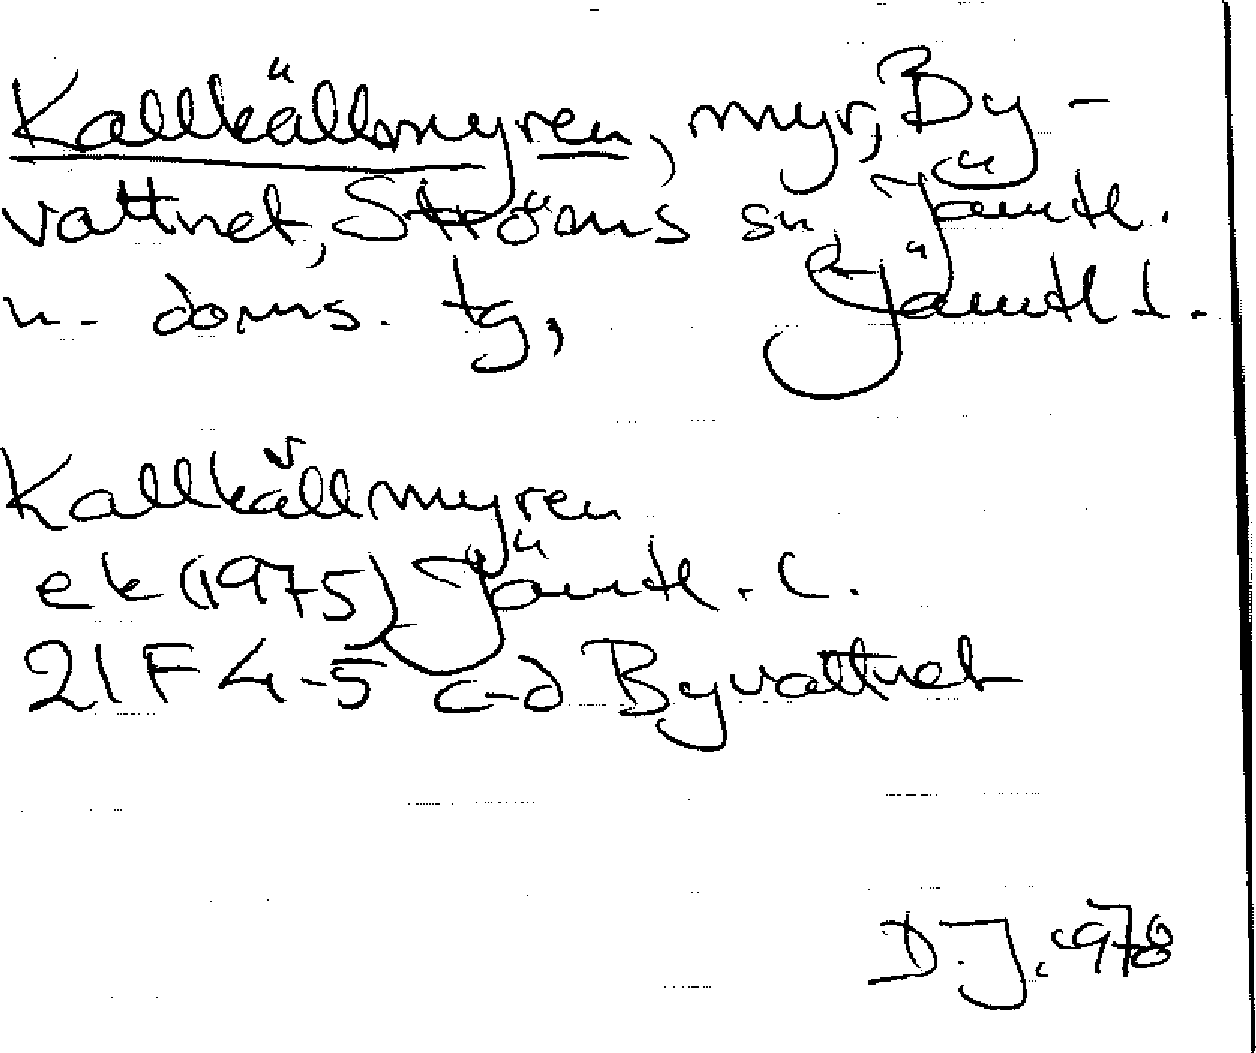 Kallkällmyren, myr, By-
vattnet, Ströms sn Jämtl.
n. doms. tg, Jämtl l.
Kallkällmyren
ek (1975) Jämtl. l.
21F 4-5 c-d Byvattnet
D.J. 1978